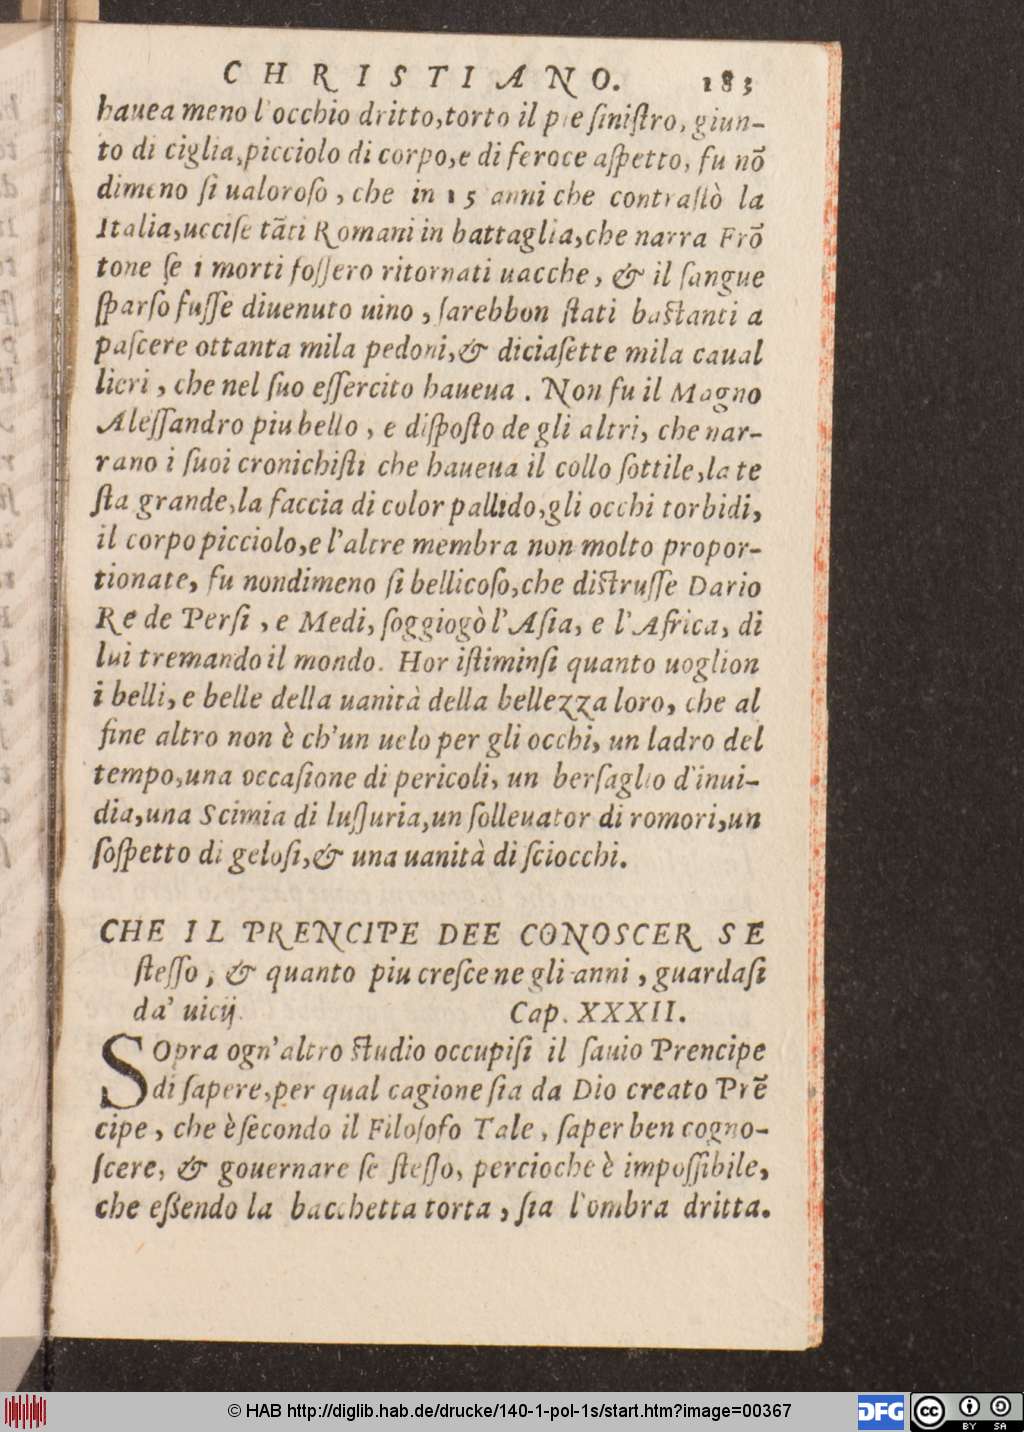 CHRISTIANO. 183
hauea meno l'occhio dritto,torto il pie ſiniſtro, giun-
to di ciglia,picciolo di corpo,e di feroce aſpetto, fu nō
dimeno ſi ualoroſo, che in 15 anni che contraſtò la
Italia,ucciſe tāti Romani in battaglia,che narra Frō
tone ſe i morti foſſero ritornati uacche, & il ſangue
ſparſo fuſſe diuenuto uino, ſarebbon ſtati baſtanti a
paſcere ottanta mila pedoni,& diciaſette mila caual
lieri, che nel ſuo eſſercito haueua. Non fu il Magno
Aleſſandro piu bello, e diſpoſto de gli altri, che nar-
rano i ſuoi cronichiſti che haueua il collo ſottile,la te
ſta grande,la faccia di color pallido,gli occhi torbidi,
il corpo picciolo,e l'altre membra non molto propor-
tionate, fu nondimeno ſi bellicoſo,che diſtruſſe Dario
Re de Perſi, e Medi, ſoggiogò l'Aſia, e l'Africa, di
lui tremando il mondo. Hor iſtiminſi quanto uoglion
i belli, e belle della uanità della bellezza loro, che al
fine altro non è ch'un uelo per gli occhi, un ladro del
tempo,una occaſione di pericoli, un berſaglio d'inui-
dia,una Scimia di luſſuria,un ſolleuator di romori,un
ſoſpetto di geloſi,& una uanità di ſciocchi.
CHE IL PRENCIPE DEE CONOSCER SE
ſteſſo, & quanto piu creſce ne gli anni, guardaſi
da' uicij. Cap. XXXII.
SOpra ogn'altro ſtudio occupiſi il ſauio Prencipe
di ſapere,per qual cagione ſia da Dio creato Prē
cipe, che è ſecondo il Filoſofo Tale, ſaper ben cogno-
ſcere, & gouernare ſe ſteſſo, percioche è impoſſibile,
che eßendo la bacchetta torta, ſia l'ombra dritta.
© HAB http://diglib.hab.de/drucke/140-1-pol-1s/start.htm?image=00367
DFG
cc BY SA